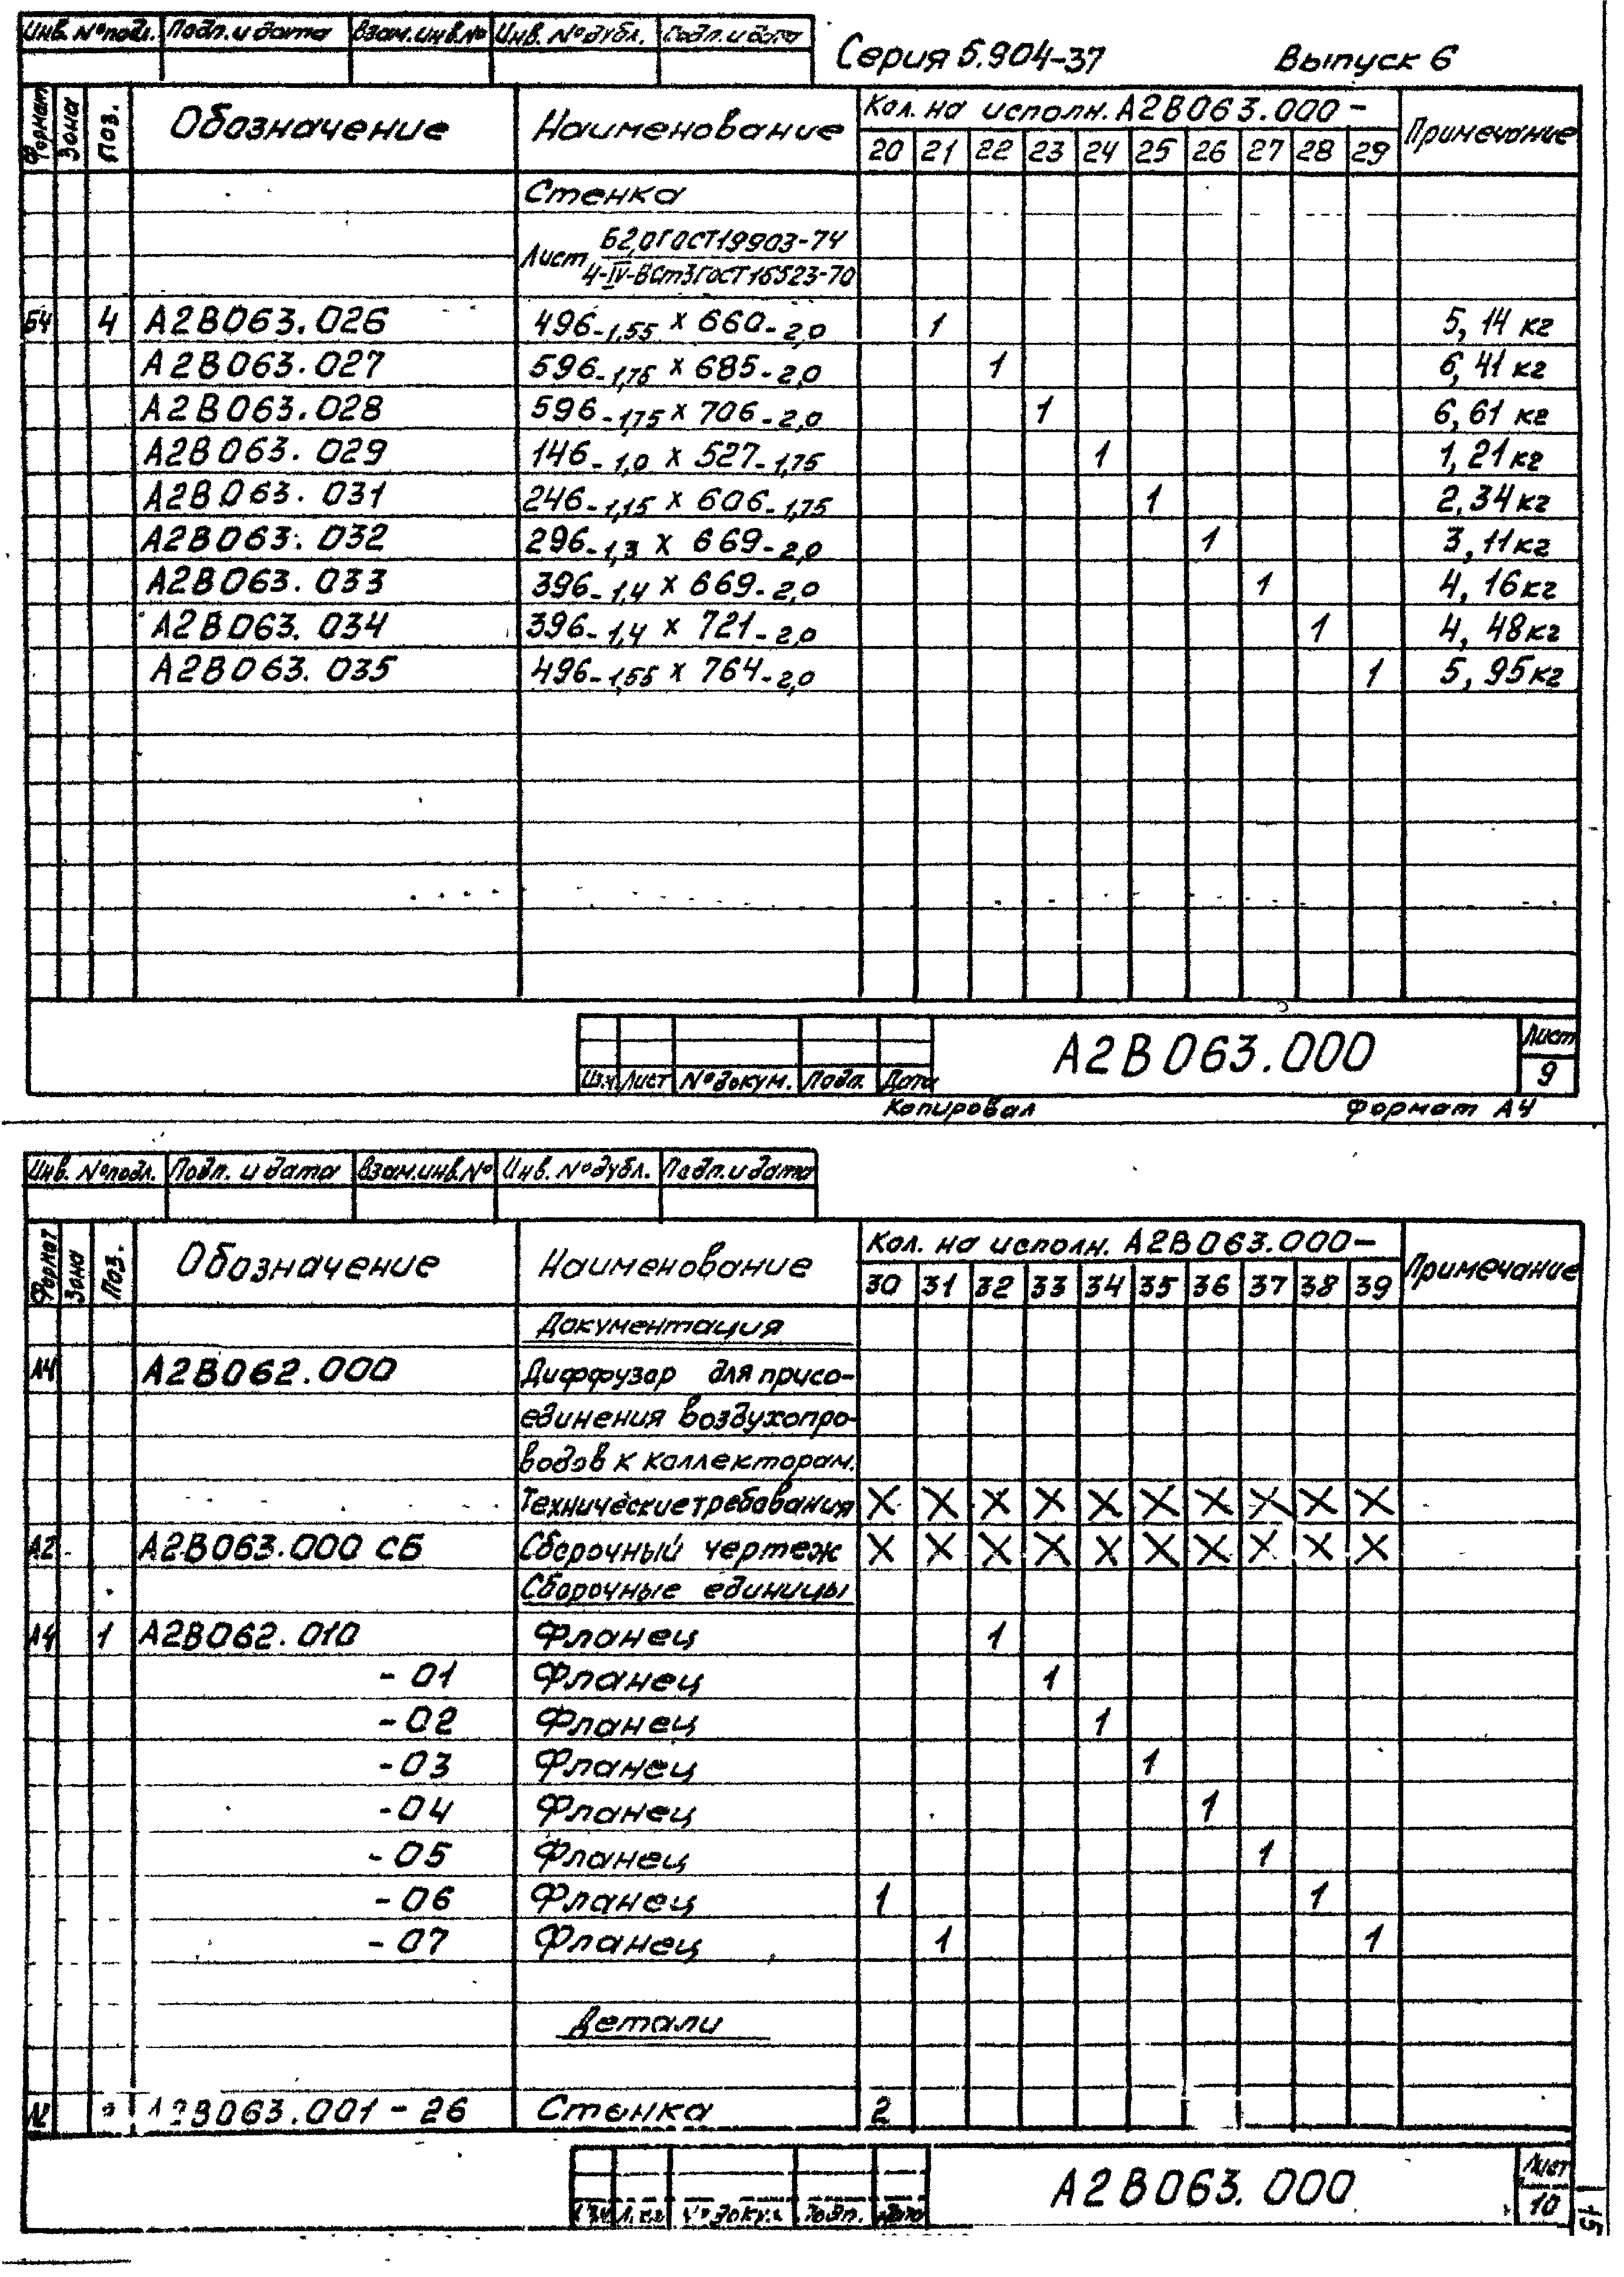 Инв. № подл. Подп. и дата Взам. инв. № Инв. № дубл. Подп. и дата
Серия 5.904-37 Выпуск 6
Формат Зона Поз. Обозначение Наименование Кол. на исполн. А2В063.000 - Примечание
20 21 22 23 24 25 26 27 28 29
Стенка
Лист Б2,0 ГОСТ 19903-74
4-IV-ВСт3 ГОСТ 16523-70
Б4 4 А2В063.026 496-1,55 х 660-2,0 1 5,14 кг
А2В063.027 596-1,75 х 685-2,0 1 6,41 кг
А2В063.028 596-1,75 х 706-2,0 1 6,61 кг
А2В063.029 146-1,0 х 527-1,75 1 1,21 кг
А2В063.031 246-1,15 х 606-1,75 1 2,34 кг
А2В063.032 296-1,3 х 669-2,0 1 3,11 кг
А2В063.033 396-1,4 х 669-2,0 1 4,16 кг
А2В063.034 396-1,4 х 721-2,0 1 4,48 кг
А2В063.035 496-1,55 х 764-2,0 1 5,95 кг
А2В063.000 Лист
9
Изм. Лист № докум. Подп. Дата
Копировал Формат А4
Инв. № подл. Подп. и дата Взам. инв. № Инв. № дубл. Подп. и дата
Формат Зона Поз. Обозначение Наименование Кол. на исполн. А2В063.000 - Примечание
30 31 32 33 34 35 36 37 38 39
Документация
А4 А2В062.000 Диффузор для присо-
единения воздухопро-
водов к коллекторам.
Технические требования X X X X X X X X X X
А2 А2В063.000 СБ Сборочный чертеж X X X X X X X X X X
Сборочные единицы
А4 1 А2В062.010 Фланец 1
-01 Фланец 1
-02 Фланец 1
-03 Фланец 1
-04 Фланец 1
-05 Фланец 1
-06 Фланец 1 1
-07 Фланец 1 1
Детали
А2 2 А2В063.001 - 26 Стенка 2
А2В063.000 Лист
10
Изм. Лист № докум. Подп. Дата